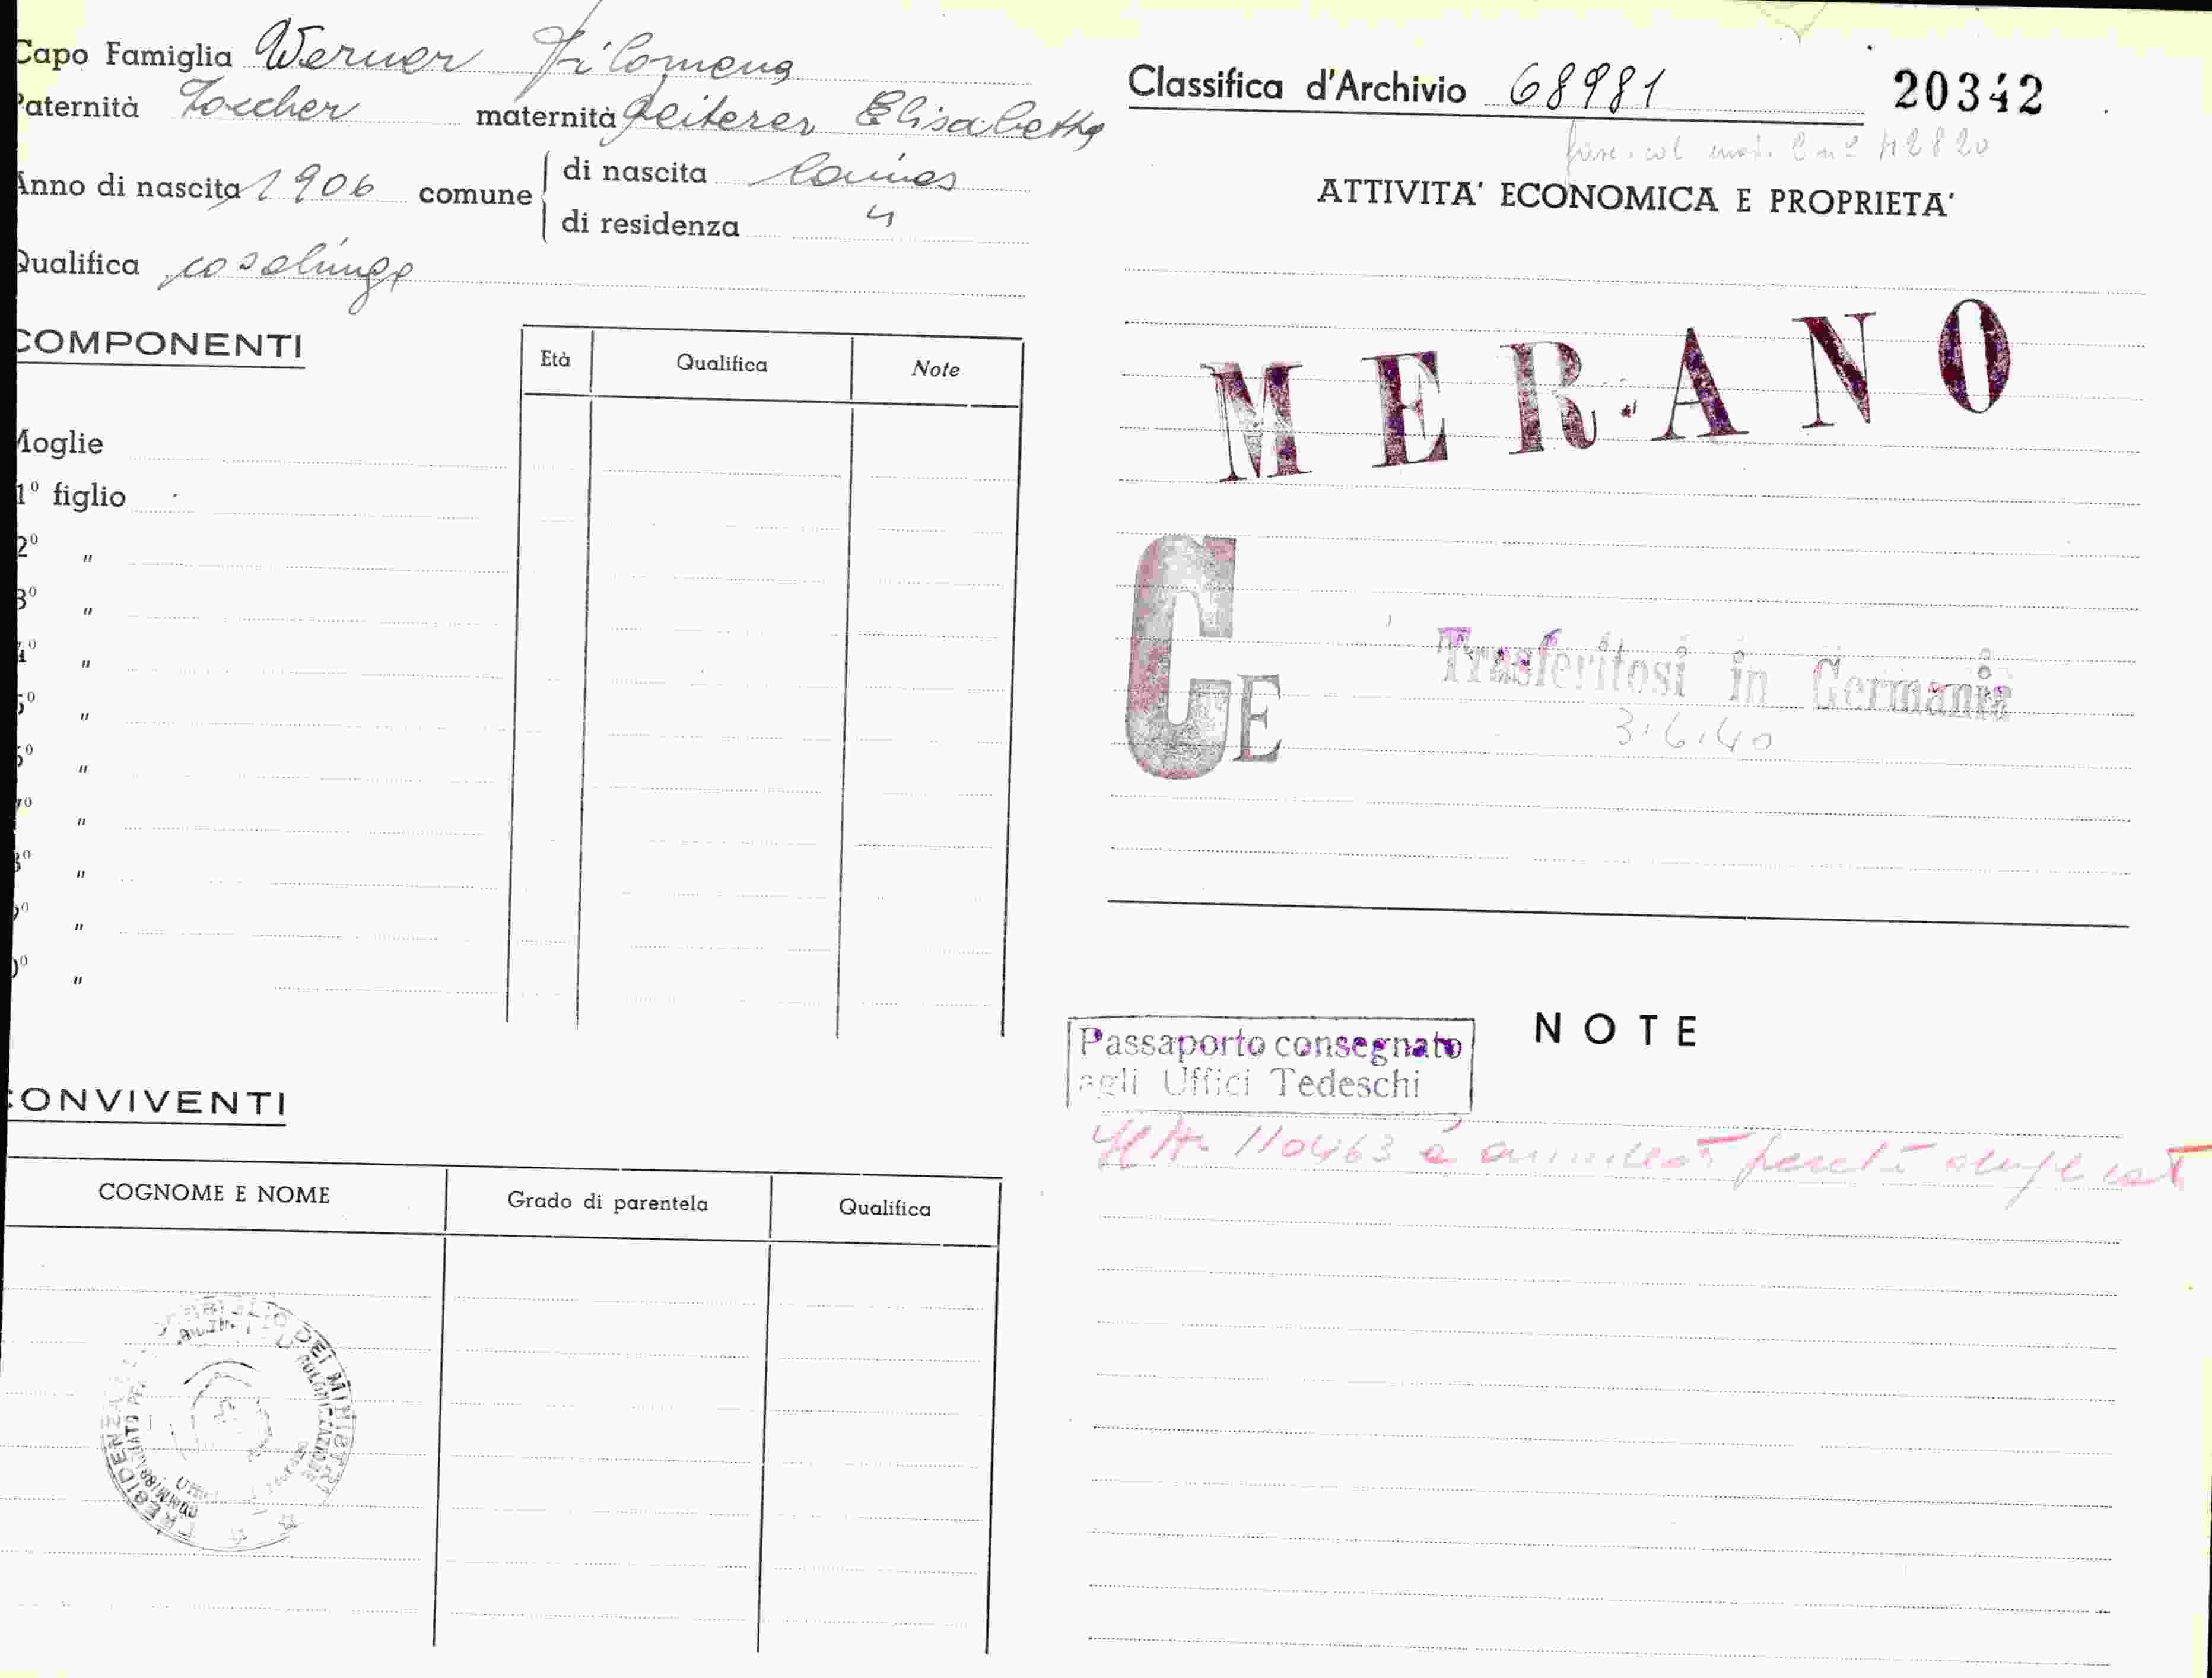 Capo Famiglia Werner Filomena
Paternità maternità Elisabetta
Anno di nascita 1906 comune
di nascita Caines
di residenza "
Qualifica casalinga
COMPONENTI
Età Qualifica Note
Moglie
1º figlio
2º "
3º "
4º "
5º "
6º "
7º "
8º "
9º "
0º "
CONVIVENTI
COGNOME E NOME Grado di parentela Qualifica
PRESIDENZA DEI MINISTRI
Classifica d'Archivio 68981 20342
ATTIVITA' ECONOMICA E PROPRIETA'
MERANO
GE
Trasferitosi in Germania
3.6.40
NOTE
Passaporto consegnato
agli Uffici Tedeschi
110463 è perché